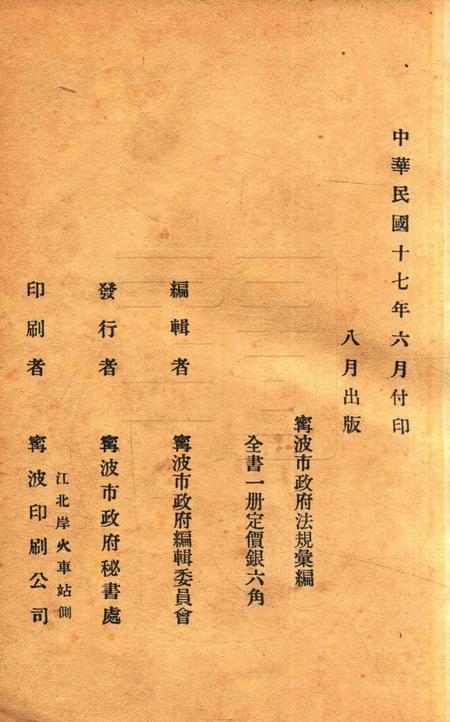 中華民國十七年六月付印
八月出版
甯波市政府法規彙編
全書一册定價銀六角
編輯者
甯波市政府編輯委員會
發行者
甯波市政府秘書處
江北岸火車站側
印刷者
甯波印刷公司